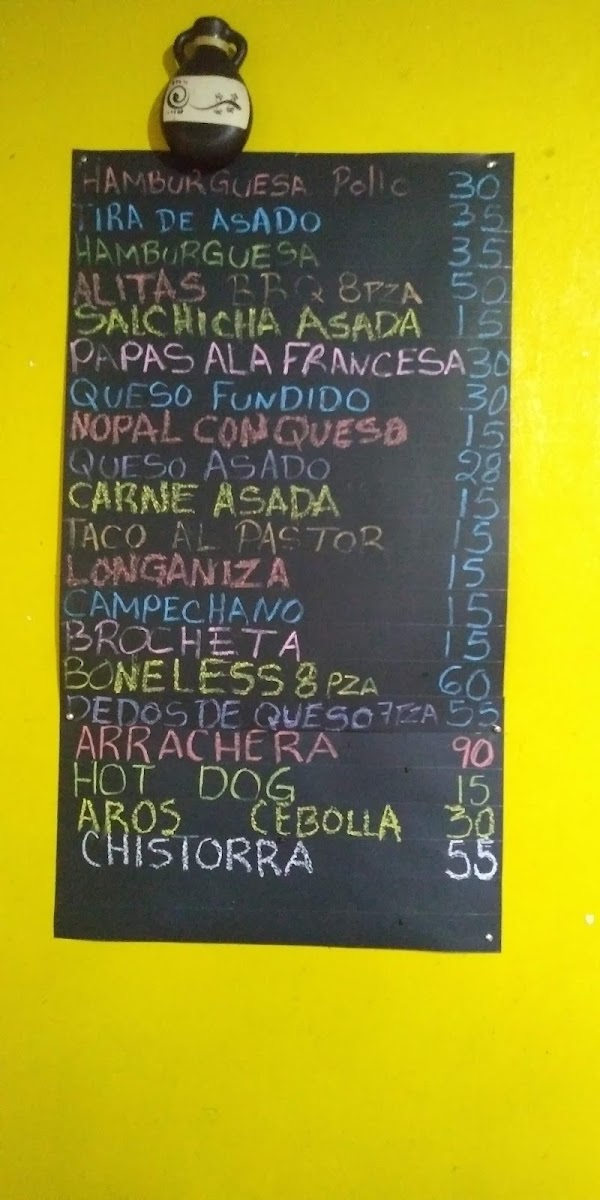 HAMBURGUESA Pollo 30
TIRA DE ASADO 35
HAMBURGUESA 35
ALITAS BBQ 8PZA 50
SALCHICHA ASADA 15
PAPAS ALA FRANCESA 30
QUESO FUNDIDO 30
NOPAL CON QUESO 15
QUESO ASADO 28
CARNE ASADA 15
TACO AL PASTOR 15
LONGANIZA 15
CAMPECHANO 15
BROCHETA 15
BONELESS 8 PZA 60
DEDOS DE QUESO 7PZA 55
ARRACHERA 90
HOT DOG 15
AROS CEBOLLA 30
CHISTORRA 55